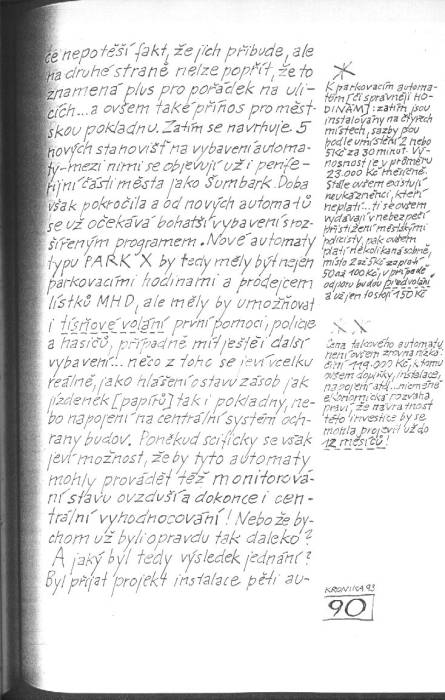 če nepotěší fakt, že jich přibude, ale
na druhé straně nelze popřít, že to
znamená plus pro pořádek na uli-
cích... a ovšem také přínos pro měst-
skou pokladnu. Zatím se navrhuje 5
nových stanovišť na vybavení automa-
ty - mezi nimi se objevují už i perife-
rijní části města jako Šumbark. Doba
však pokročila a od nových automatů
se už očekává bohatší vybavení s roz-
šířeným programem. Nové automaty
typu PARK X by tedy měly být nejen
parkovacími hodinami a prodejcem
lístků MHD, ale měly by umožňovat
i tísňové volání první pomoci, policie
a hasičů, případně mít ještě i další
vybavení... něco z toho se jeví vcelku
reálně, jako hlášení o stavu zásob jak
jízdenek [papírů] tak i pokladny, ne-
bo napojení na centrální systém och-
rany budov. Poněkud scificky se však
jeví možnost, že by tyto automaty
mohly provádět též monitorová-
ní stavu ovzduší a dokonce i cen-
trální vyhodnocování! Nebo že by-
chom už byli opravdu tak daleko?
A jaký byl tedy výsledek jednání?
Byl přijat projekt instalace pěti au-
K parkovacím automa-
tům [či správněji HO-
DINÁM]: zatím jsou
instalovány na čtyřech
místech, sazby jsou
podle umístění 2 nebo
5 Kč za 30 minut. Vý-
nosnost je v průměru
23.000 Kč měsíčně.
Stále ovšem existují
neukáznění, kteří
neplatí... ti se ovšem
vydávají v nebezpečí
přistižení městskými
policisty, pak ovšem
platí několikanásobně,
místo 2 až 5 Kč zaplatí
50 až 100 Kč, v případě
odporu budou předvoláni
a už jen to stojí 150 Kč
Cena takového automatu
není ovšem zrovna nízká:
činí 119.000 Kč, k tomu
ovšem doplňky, instalace,
napojení atd... nicméně
ekonomická rozvaha
praví, že návratnost
této investice by se
mohla projevit už do
12 měsíců!
KRONIKA 93
90